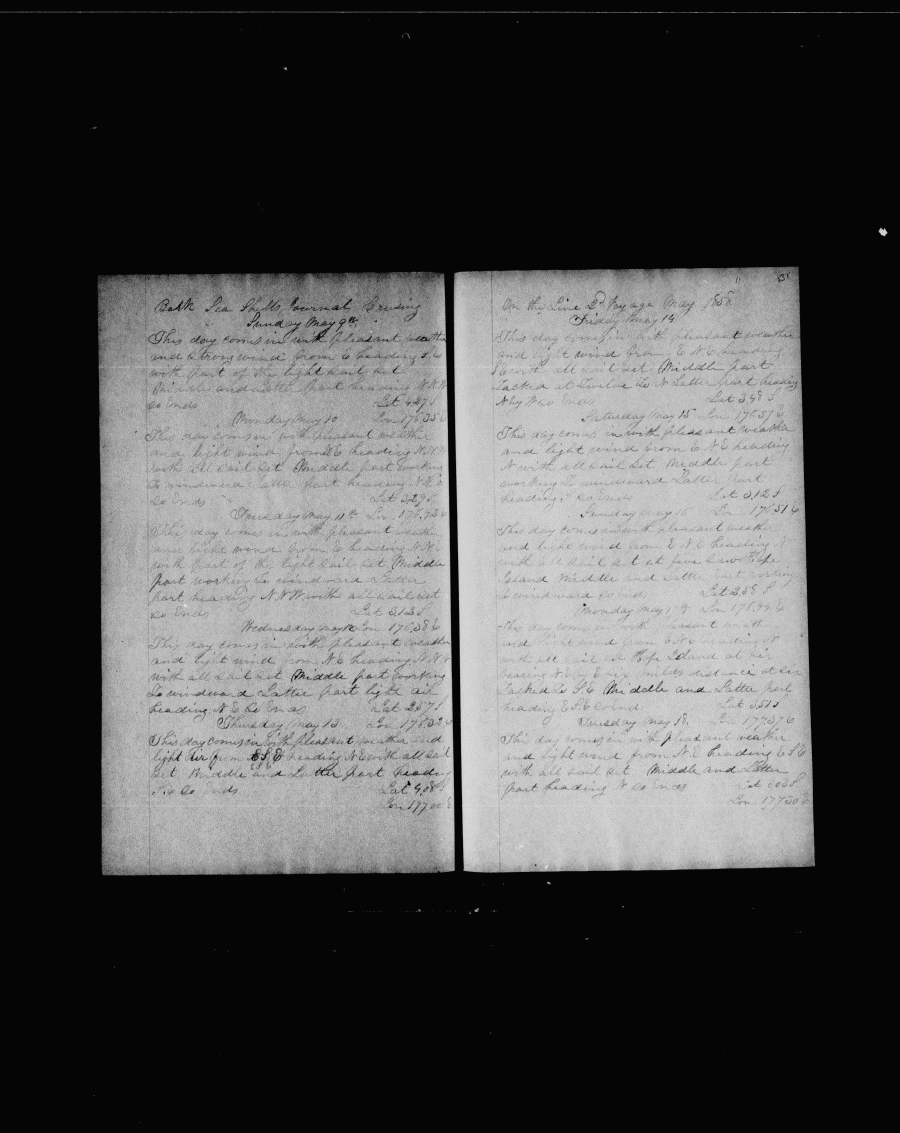 Bark Sea Shells Journal Cruising
Sunday May 9th
This day comes in with pleasant weather
and strong wind from E heading S E
with part of the light sail set
Middle and Latter part heading N N W
So Ends Lat 4.27 S
Monday May 10 Lon 176.35 E
This day comes in with pleasant weather
and light wind from N E heading N N W
with all sail set Middle part working
to windward Latter part heading N N E
So Ends Lat 3.29 S
Tuesday May 11th Lon 176.
This day comes in with pleasant weather
and light wind from E heading N N
with part of the light sail set Middle
part working to windward Latter
part heading N N W with all sail set
So Ends Lat 3.12 S
Wednesday May 12 Lon 176.38 E
This day comes in with pleasant weather
and light wind from N E heading N N W
with all sail set Middle part working
to windward Latter part light air
heading N E So Ends Lat 2.57 S
Thursday May 13 Lon 176.52 E
This day comes in with pleasant weather and
light air from E S E heading N E with all sail
set Middle and Latter part heading
S E So Ends Lat 4.08 S
Lon 177.00 E
131
On the Line 2d Voyage May 1858
Friday May 14
This day comes in with pleasant weather
and light wind from E N E heading
S E with all sail set Middle part
tacked at Twelve to N Latter part heading
N by W So Ends Lat 3.48 S
Saturday May 15 Lon 176.57 E
This day comes in with pleasant weather
and light wind from E N E heading
N with all sail set Middle part
working to windward Latter part
heading So Ends Lat 3.12 S
Sunday May 16 Lon 176.51 E
This day comes in with pleasant weather
and light wind from E N E heading N
with all sail set at five saw Hope
Island Middle and Latter part working
to windward So Ends Lat 2.58 S
Monday May 17 Lon 176.49 E
This day comes in with pleasant weath
and light wind from E N E heading N
with all sail set Hope Island at six
bearing N by E six miles distance at six
tacked to S E Middle and Latter part
heading E S E So End Lat 3.51 S
Tuesday May 18 Lon 177.37 E
This day comes in with pleasant weather
and light wind from N E heading E S E
with all sail set Middle and Latter
part heading N So Ends Lat 3.03 S
Lon 177.30 E